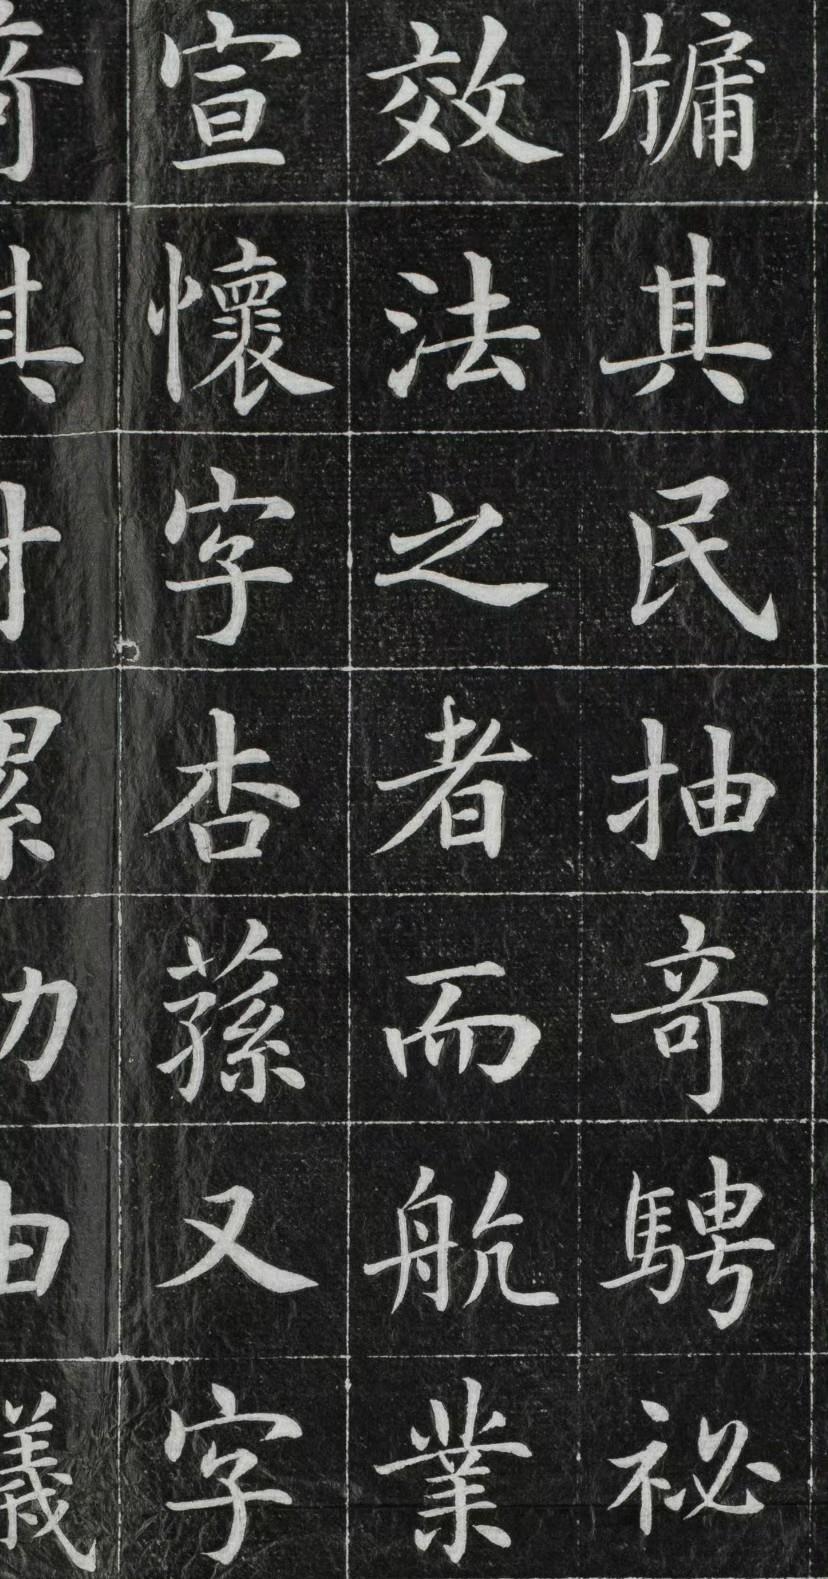 牖其民抽奇騁祕
效法之者而航業
宣懷字杏蓀又字
其
累
力
由
義